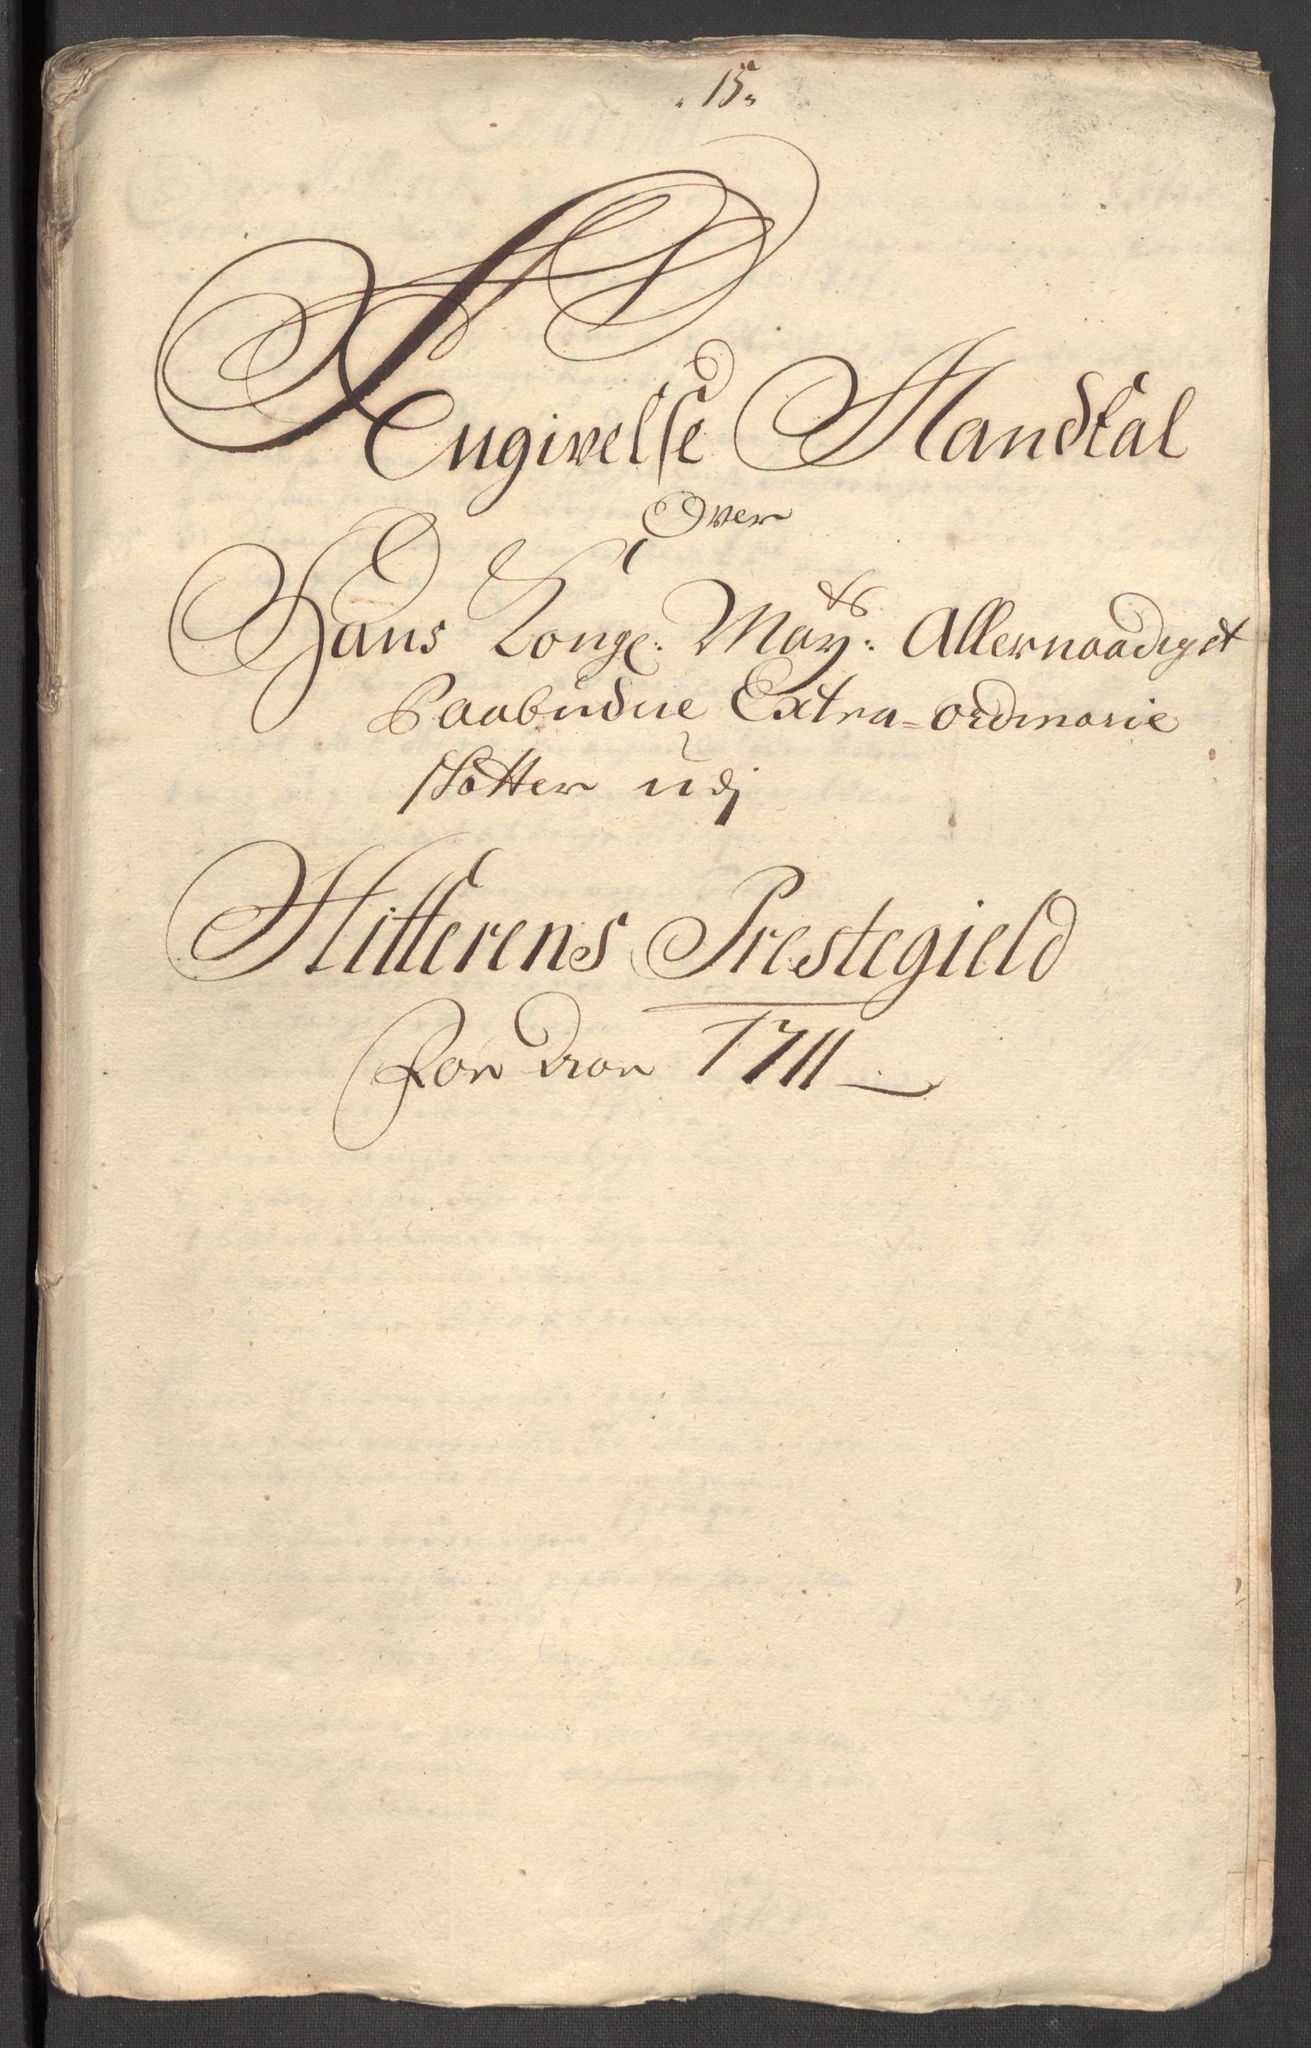 . 15.
Angivelse Mandtal
Over
Hans Kongl. May:ts Allernaadigst
Paabudne Extra-ordinarie
skatter udj
Hitterens Prestegield
For Aar 1711